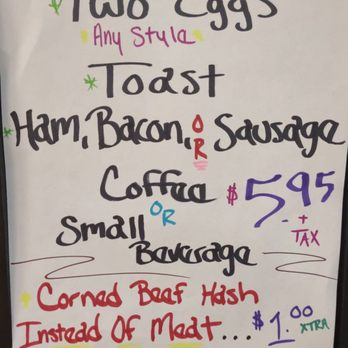 Two Eggs
Any Style
* Toast
* Ham, Bacon, OR Sausage
Coffee $5.95
OR
Small + TAX
Beverage
Corned Beef Hash
Instead Of Meat... $1.00 XTRA